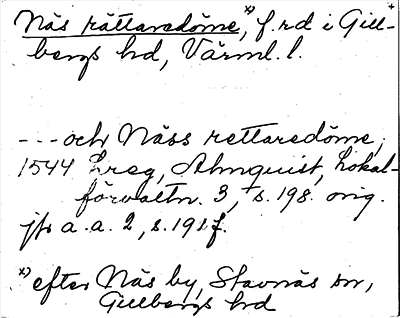 Näs rättaredöme,*) f.rd i Gill-
bergs hd, Värml. l.
---och Näss rettaredöme,
1544 Lreg, Almquist, Lokal-
förvaltn. 3, s. 198. orig.
jfr a. a. 2, s. 191 f.
*) efter Näs by, Stavnäs sn,
Gillbergs hd